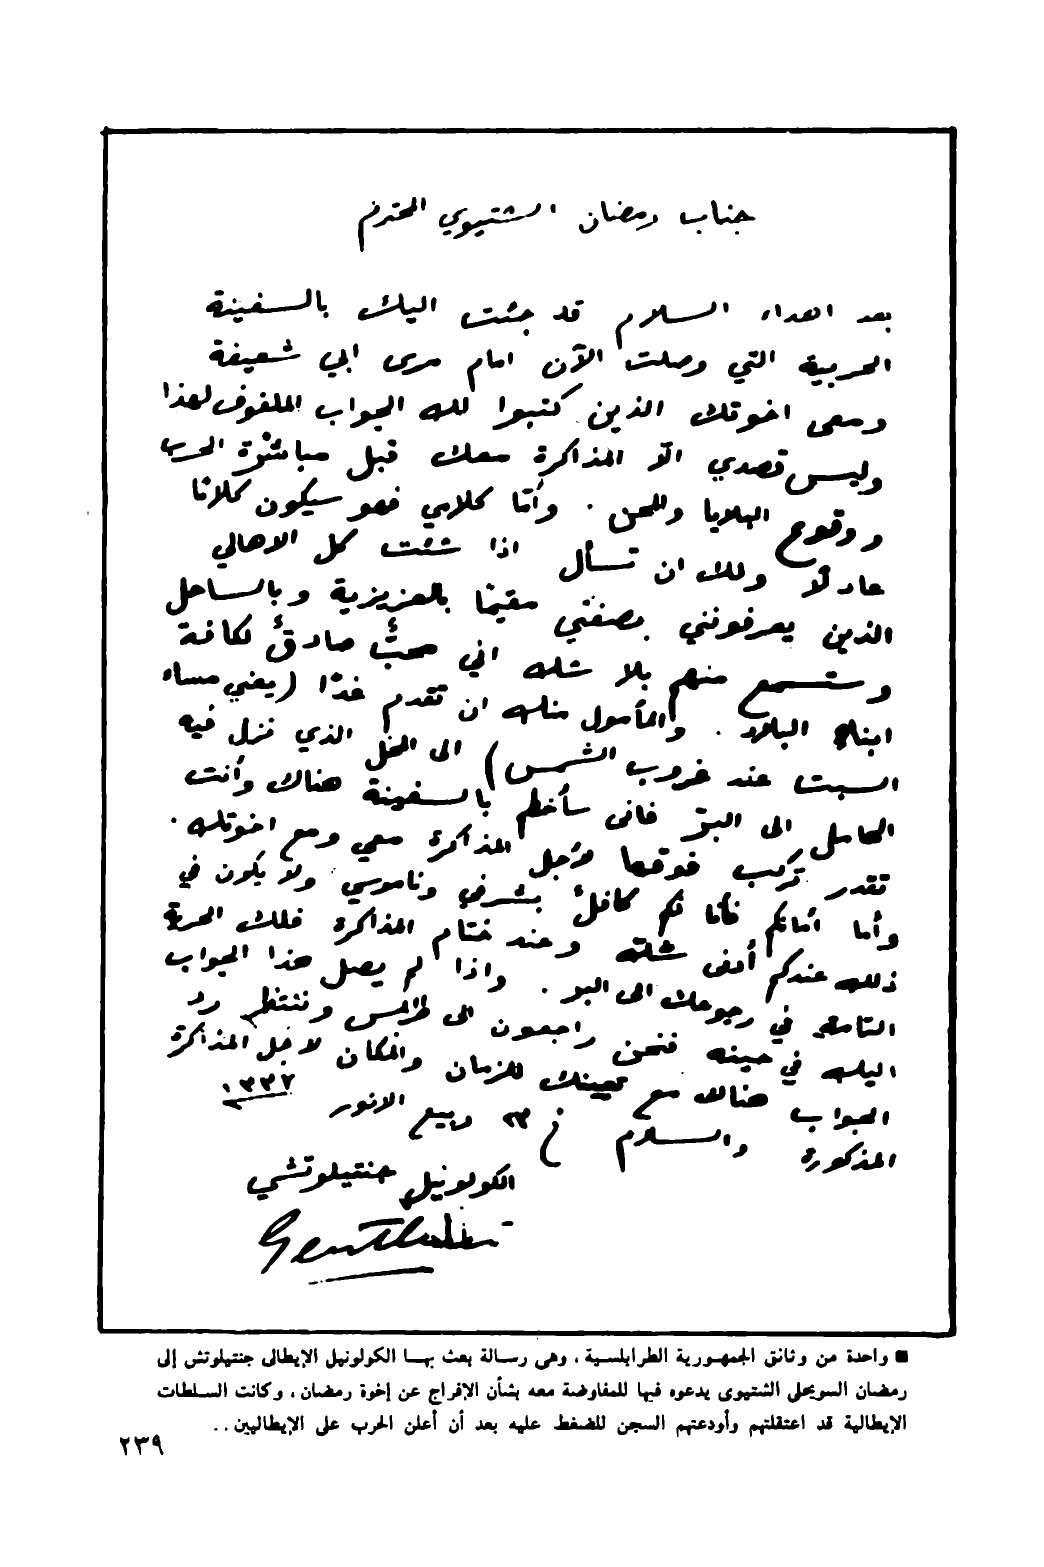 جناب رمضان الشتيوي المحترم
بعد اهداء السلام قد جئت اليك بالسفينة
الحربية التي وصلت الآن امام مرسى ابي شعيفة
ومعى اخوتك الذين كتبوا لك الجواب الملفوف لهذا
وليس قصدي الّا المذاكرة معك قبل مباشرة الحرب
ووقوع البلايا والمحن . وأمّا كلامي فهو سيكون كلامًا
عادلًا ولك ان تسأل اذا شئت كل الاهالي
الذين يعرفونني بصفتي مقيمًا بالعزيزية وبالساحل
وستسمع منهم بلا شك اني محبٌّ صادقٌ لكافة
ابناء البلاد . والمأمول منك ان تقدم غدًا (يعني مساء
السبت عند غروب الشمس) الى المحل الذي نزل فيه
الحامل الى البر فانى بالسفينة هناك وأنت
تقدر تركب فوقها لأجل المذاكرة معي ومع اخوتك .
وأما أمانكم فأنا لكم كافلٌ بشرفي وناموسي ولا يكون في
ذلك عندكم أدنى شك وعند ختام المذاكرة فلك الحرية
التامة في رجوعك الى البر . واذا لم يصل هذا الجواب
اليك في حينه فنحن راجعون الى طرابلس وننتظر رد
الجواب هناك مع تعيينك للزمان والمكان لاجل المذاكرة
المذكورة والسلام في ٢٣ ربيع الانور ١٣٣٢
الكولونيل جنتيلوتشي
■ واحدة من وثائق الجمهورية الطرابلسية ، وهى رسالة بعث بها الكولونيل الإيطالى جنتيلوتش إلى
رمضان السويحلى الشتيوى يدعوه فيها للمفاوضة معه بشأن الإفراج عن إخوة رمضان ، وكانت السلطات
الإيطالية قد اعتقلتهم وأودعتهم السجن للضغط عليه بعد أن أعلن الحرب على الإيطاليين . .
٢٣٩